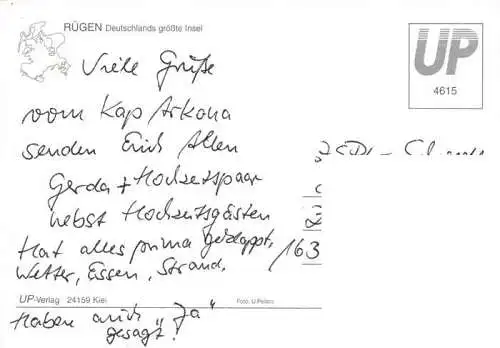 RÜGEN Deutschlands größte Insel
UP
4615
Viele Grüße
vom Kap Arkona
senden Euch Allen
Gerda + Hochzeitspaar
nebst Hochzeitsgästen
Hat alles prima geklappt,
Wetter, Essen, Strand.
163
UP-Verlag 24159 Kiel
Foto: U.Peters
Haben auch "Ja"
gesagt!